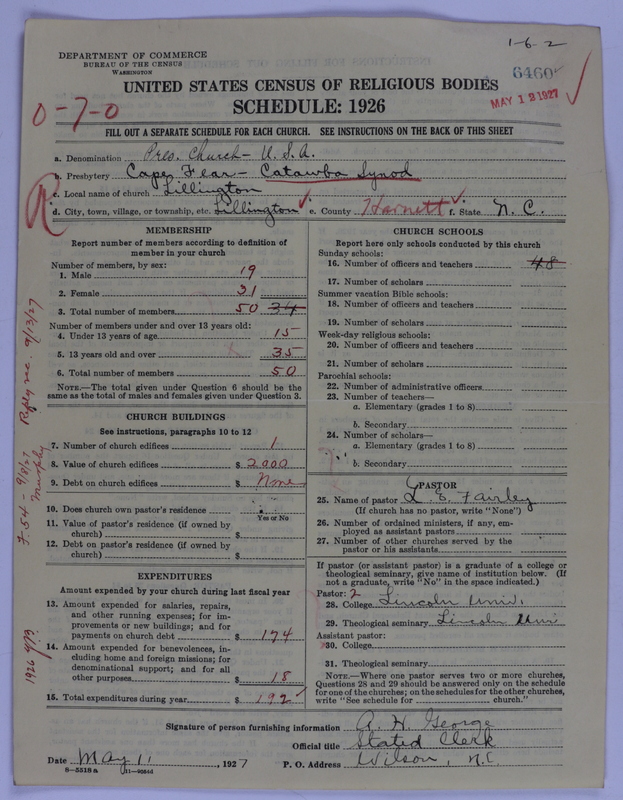 1-6-2
DEPARTMENT OF COMMERCE
BUREAU OF THE CENSUS
WASHINGTON
6460
MAY 13 1927
UNITED STATES CENSUS OF RELIGIOUS BODIES
SCHEDULE: 1926
0-7-0
FILL OUT A SEPARATE SCHEDULE FOR EACH CHURCH. SEE INSTRUCTIONS ON THE BACK OF THIS SHEET
a. Denomination Pres. Church - U.S.A.
b. Presbytery Cape Fear - Catawba Synod
c. Local name of church Lillington
d. City, town, village, or township, etc. Lillington e. County Harnett f. State N. C.
R
MEMBERSHIP
Report number of members according to definition of member in your church
Number of members, by sex:
1. Male 19
2. Female 31
3. Total number of members 50 34
Number of members under and over 13 years old:
4. Under 13 years of age 15
5. 13 years old and over 35
6. Total number of members 50
NOTE.—The total given under Question 6 should be the same as the total of males and females given under Question 3.
CHURCH BUILDINGS
See instructions, paragraphs 10 to 12
7. Number of church edifices 1
8. Value of church edifices $ 2000
9. Debt on church edifices $ None
10. Does church own pastor's residence
Yes or No
11. Value of pastor's residence (if owned by church) $
12. Debt on pastor's residence (if owned by church) $
EXPENDITURES
Amount expended by your church during last fiscal year
13. Amount expended for salaries, repairs, and other running expenses; for improvements or new buildings; and for payments on church debt $ 174
14. Amount expended for benevolences, including home and foreign missions; for denominational support; and for all other purposes $ 18
15. Total expenditures during year $ 192
CHURCH SCHOOLS
Report here only schools conducted by this church
Sunday schools:
16. Number of officers and teachers 48
17. Number of scholars
Summer vacation Bible schools:
18. Number of officers and teachers
19. Number of scholars
Week-day religious schools:
20. Number of officers and teachers
21. Number of scholars
Parochial schools:
22. Number of administrative officers
23. Number of teachers—
a. Elementary (grades 1 to 8)
b. Secondary
24. Number of scholars—
a. Elementary (grades 1 to 8)
b. Secondary
PASTOR
25. Name of pastor L. E. Fairley
(If church has no pastor, write "None")
26. Number of ordained ministers, if any, employed as assistant pastors
27. Number of other churches served by the pastor or his assistants
If pastor (or assistant pastor) is a graduate of a college or theological seminary, give name of institution below. (If not a graduate, write "No" in the space indicated.)
Pastor: 2
28. College Lincoln Univ.
29. Theological seminary Lincoln Uni
Assistant pastor:
30. College
31. Theological seminary
NOTE.—Where one pastor serves two or more churches, Questions 28 and 29 should be answered only on the schedule for one of the churches; on the schedules for the other churches, write "See schedule for church."
Signature of person furnishing information A. H. George
Official title Stated Clerk
Date May 11, 1927 P. O. Address Wilson, N.C.
8-5318 a
Reply rec. 9/13/27
F. 54 - 9/8/27
Murphy
1926